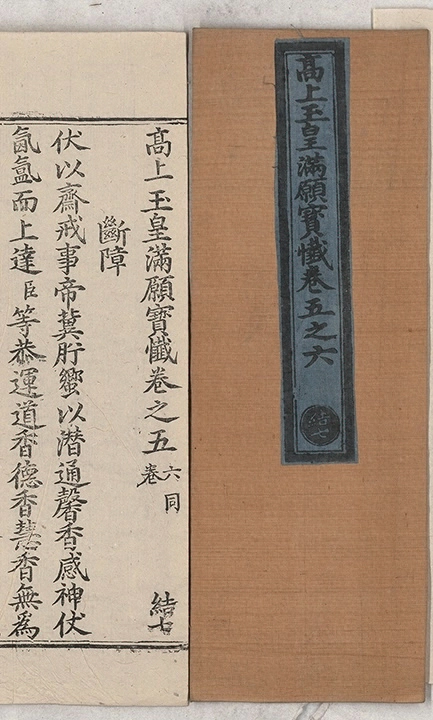 高上玉皇滿願寶懺卷五之六
結七
高上玉皇滿願寶懺卷之五 六卷同 結七
斷障
伏以齋戒事帝冀肸蠁以潛通馨香感神伏
氤氳而上達臣等恭運道香德香慧香無為